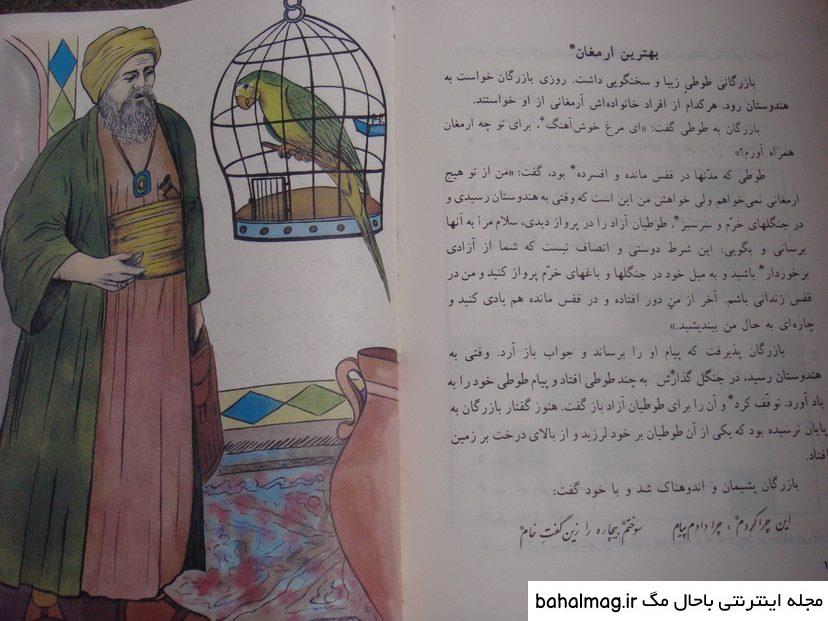 بهترین ارمغان*
بازرگانی طوطیِ زیبا و سخنگویی داشت. روزی بازرگان خواست به
هندوستان رود. هرکدام از افراد خانواده‌اش اَرمغانی از او خواستند.
بازرگان به طوطی گفت: «ای مرغ خوش‌آهنگ*، برای تو چه ارمغان
همراه آورم؟»
طوطی که مدتها در قفس مانده و افسرده* بود، گفت: «من از تو هیچ
ارمغانی نمی‌خواهم ولی خواهش من این است که وقتی به هندوستان رسیدی و
در جنگلهای خرّم و سرسبز*، طوطیان آزاد را در پرواز دیدی، سلام مرا به آنها
برسانی و بگویی: این شرط دوستی و انصاف نیست که شما از آزادی
برخوردار* باشید و به میل خود در جنگلها و باغهای خرّم پرواز کنید و من در
قفس زندانی باشم. آخر از منِ دور افتاده و در قفس مانده هم یادی کنید و
چاره‌ای به حال من بیندیشید.»
بازرگان پذیرفت که پیام او را برساند و جواب باز آرد. وقتی به
هندوستان رسید، در جنگل گذارش* به چند طوطی افتاد و پیام طوطی خود را به
یاد آورد. توقّف کرد* و آن را برای طوطیان آزاد باز گفت. هنوز گفتار بازرگان به
پایان نرسیده بود که یکی از آن طوطیان بر خود لرزید و از بالای درخت بر زمین
افتاد.
بازرگان پشیمان و اندوهناک شد و با خود گفت:
این چرا کردم*، چرا دادم پیام سوختم* بیچاره را زین گفتِ خام*
مجله اینترنتی باحال مگ bahalmag.ir